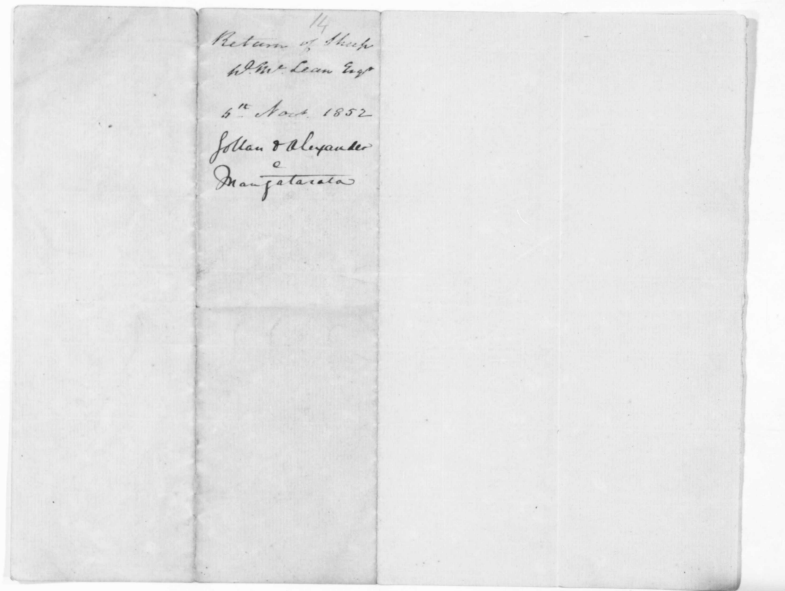 14
Return of Sheep
D. McLean Esqr
5th Novr 1852
Gollan & Alexander
Mangatarata